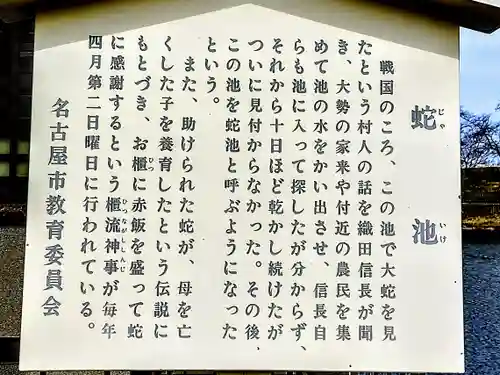 蛇池
じゃ
いけ
戦国のころ、この池で大蛇を見
たという村人の話を織田信長が聞
き、大勢の家来や付近の農民を集
めて池の水をかい出させ、信長自
らも池に入って探したが分からず、
それから十日ほど乾かし続けたが
ついに見付からなかった。その後、
この池を蛇池と呼ぶようになった
という。
また、助けられた蛇が、母を亡
くした子を養育したという伝説に
もとづき、お櫃に赤飯を盛って蛇
に感謝するという櫃流神事が毎年
四月第二日曜日に行われている。
名古屋市教育委員会